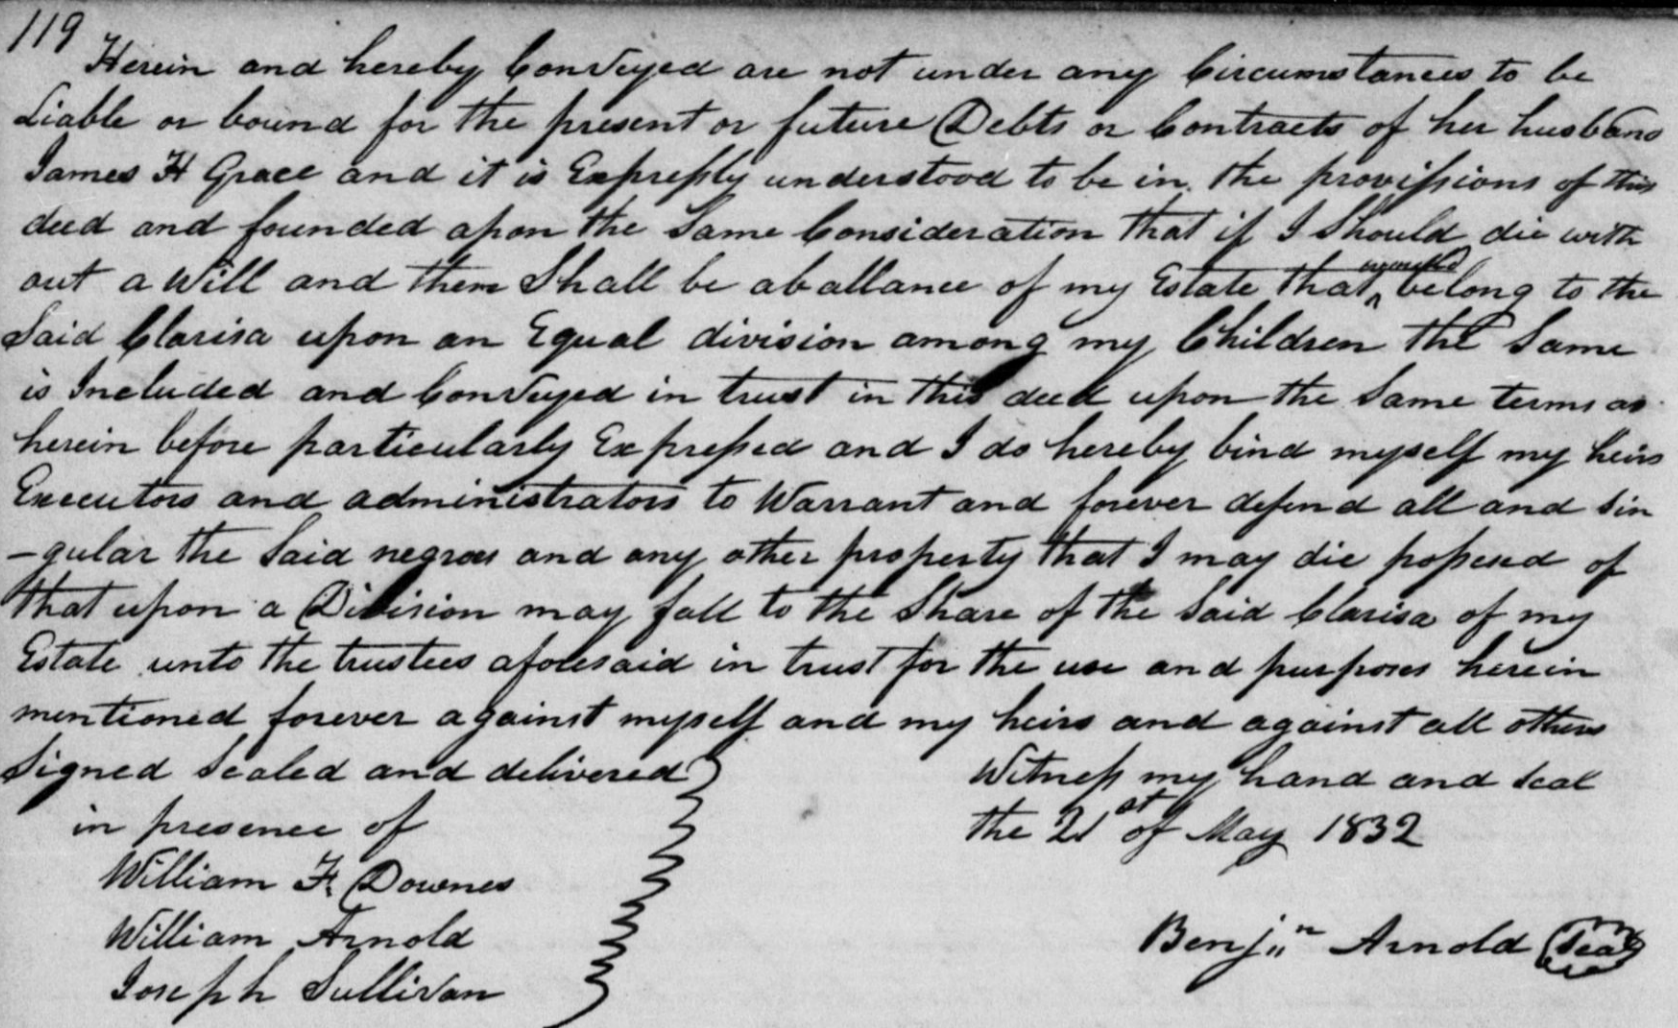 119
Herein and hereby Conveyed are not under any Circumstances to be
Liable or bound for the present or future Debts or Contracts of her husband
James H Grace and it is Expressly understood to be in the provissions of this
deed and founded apon the Same Consideration that if I Should die with
out a Will and there Shall be aballance of my Estate that would belong to the
Said Clarisa upon an Equal division among my Children the Same
is Included and Conveyed in trust in this deed upon the Same terms as
herein before particularly Expressed and I do hereby bind myself my heirs
Executors and administrators to Warrant and forever defend all and Sin
-gular the Said negroes and any other property that I may die possesed of
that upon a Division may fall to the Share of the Said Clarisa of my
Estate unto the trustees aforesaid in trust for the use and purposes herein
mentioned forever against myself and my heirs and against all others
Signed Sealed and delivered
in presence of
William F. Downes
William Arnold
Joseph Sullivan
Witness my hand and Seal
the 21st of May 1832
Benjn Arnold Seal